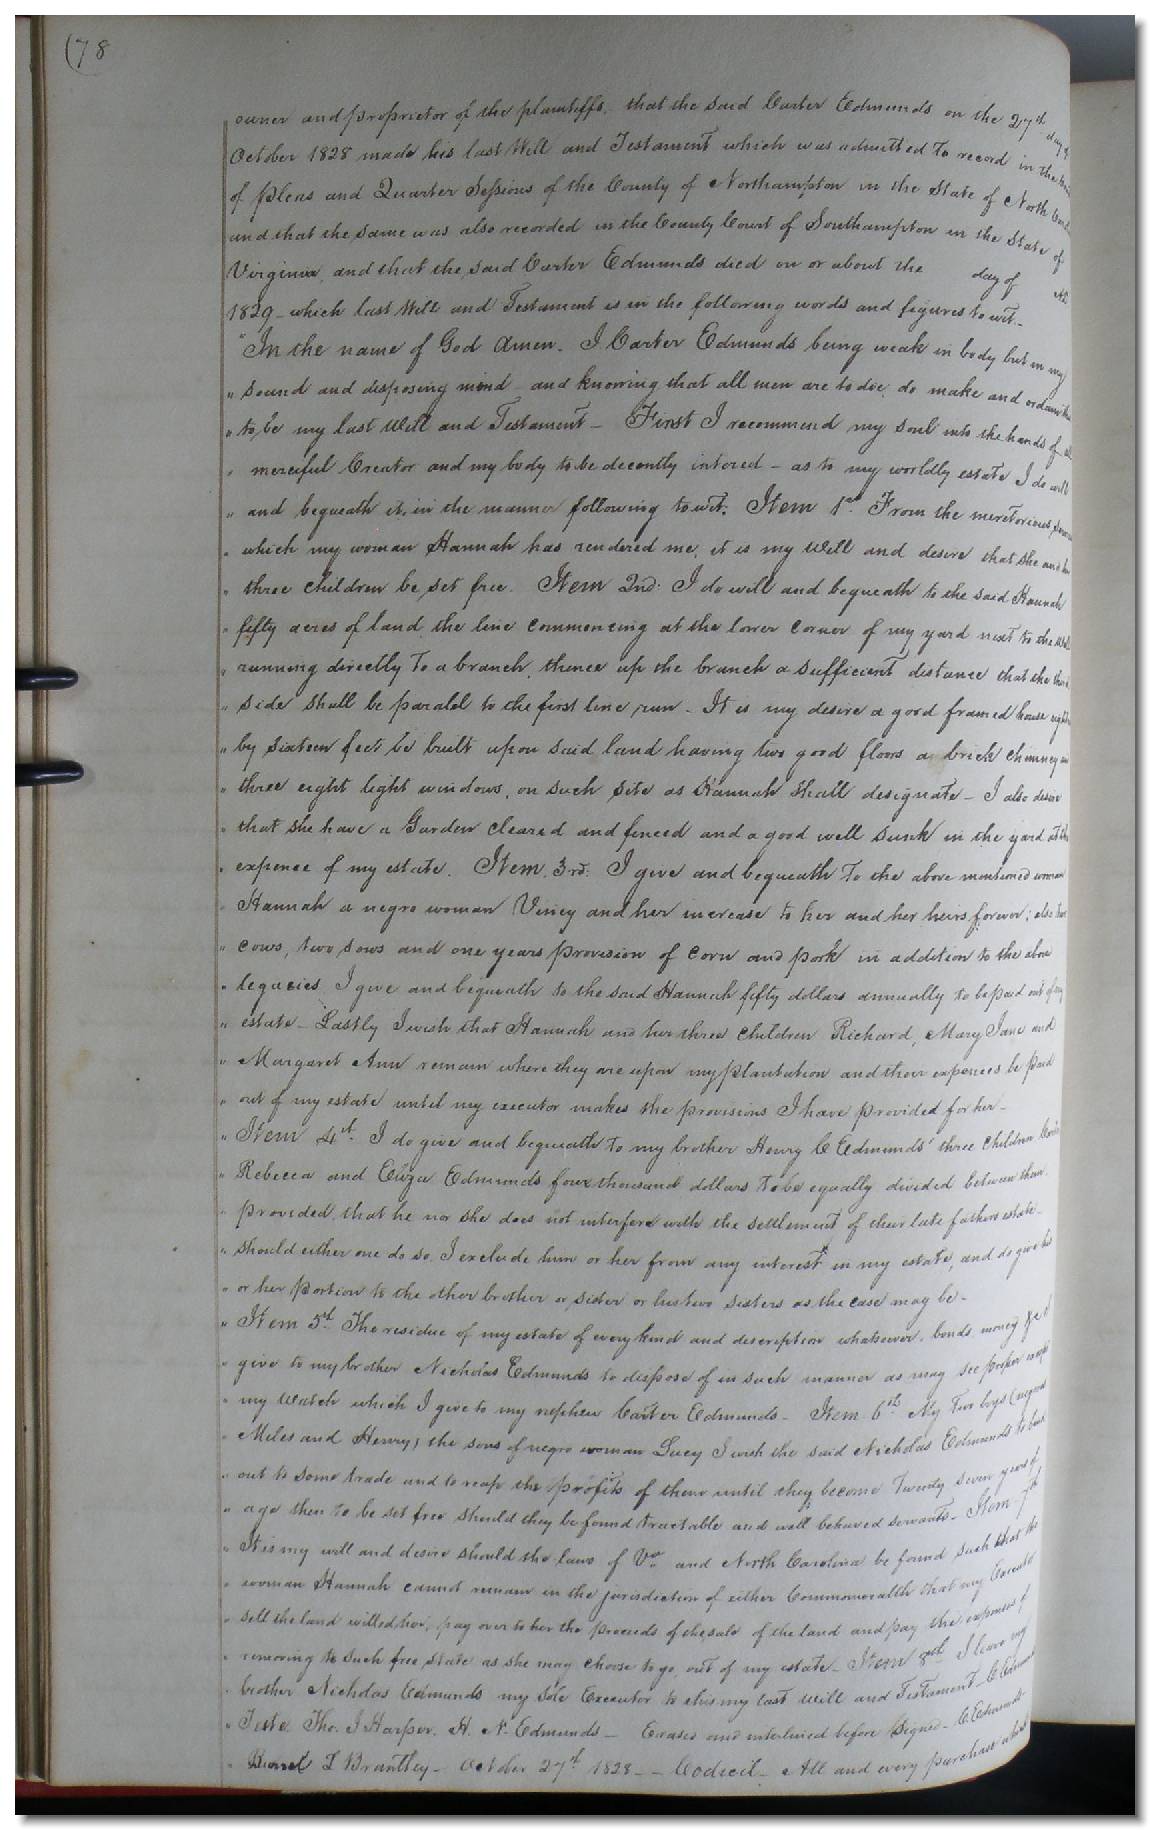 (78
owner and proprietor of the plaintiffs, that the said Carter Edmunds on the 27th day of
October 1828 made his last Will and Testament which was admitted to record in the
of Pleas and Quarter Sessions of the County of Northampton in the State of North
and that the same was also recorded in the County Court of Southampton in the State of
Virginia, and that the said Carter Edmunds died on or about the day of
1829 - which last Will and Testament is in the following words and figures to wit -
"In the name of God Amen. I Carter Edmunds being weak in body but in my
" sound and disposing mind and knowing that all men are to die, do make and ordain this
" to be my last Will and Testament - First I recommend my soul into the hands of
" merciful Creator and my body to be decently intered - as to my worldly estate I do will
" and bequeath it, in the manner following to wit. Item 1st From the meretorious
" which my woman Hannah has rendered me, it is my Will and desire that she and her
" three children be set free. Item 2nd. I do will and bequeath to the said Hannah
" fifty acres of land, the line commencing at the lower corner of my yard next to the
" running directly to a branch, thence up the branch a sufficient distance that the
" side shall be paralel to the first line run - It is my desire a good framed house
" by sixteen feet be built upon said land having two good floors a brick chimney
" three eight light windows, on such site as Hannah shall designate - I also desire
" that she have a Garden cleared and fenced and a good well sunk in the yard at the
" expence of my estate. Item. 3rd. I give and bequeath to the above mentioned woman
" Hannah a negro woman Viney and her increase to her and her heirs forever; also
" cows, two sows and one years provision of corn and pork in addition to the above
" legacies I give and bequeath to the said Hannah fifty dollars annually to be paid out of my
" estate - Lastly I wish that Hannah and her three children Richard, Mary Jane and
" Margaret Ann remain where they are upon my plantation and their expences be paid
" out of my estate until my executor makes the provisions I have provided for her -
" Item 4th. I do give and bequeath to my brother Henry C Edmunds' three children
" Rebecca and Eliza Edmunds four thousand dollars to be equally divided between them,
" provided, that he nor she does not interfere with the settlement of their late fathers estate -
" should either one do so, I exclude him or her from any interest in my estate, and do give his
" or her portion to the other brother or sister or his two sisters as the case may be -
" Item 5th. The residue of my estate of every kind and description whatsoever, bonds, money &c I
" give to my brother Nicholas Edmunds to dispose of in such manner as may see proper except
" my watch which I give to my nephew Carter Edmunds - Item 6th My two boys (negroes
" Miles and Henry) the sons of negro woman Lucy I wish the said Nicholas Edmunds to bind
" out to some trade and to reap the profits of them until they become Twenty seven years of
" age then to be set free should they be found tractable and well behaved servants - Item 7th
" It is my will and desire should the laws of Va and North Carolina be found such that the
" woman Hannah cannot remain in the jurisdiction of either Commonwealth that my Executor
" sell the land willed her, pay over to her the proceeds of the sale of the land and pay the expenses of
" removing to such free state as she may choose to go, out of my estate - Item 8th I leave my
" brother Nicholas Edmunds my sole Executor to this my last Will and Testament - C Edmunds
" Teste Tho. J Harper. H. N. Edmunds - Erases and interlined before signed - C. Edmunds
" L Brantley - October 27th 1828 - - Codicil - All and every purchase which